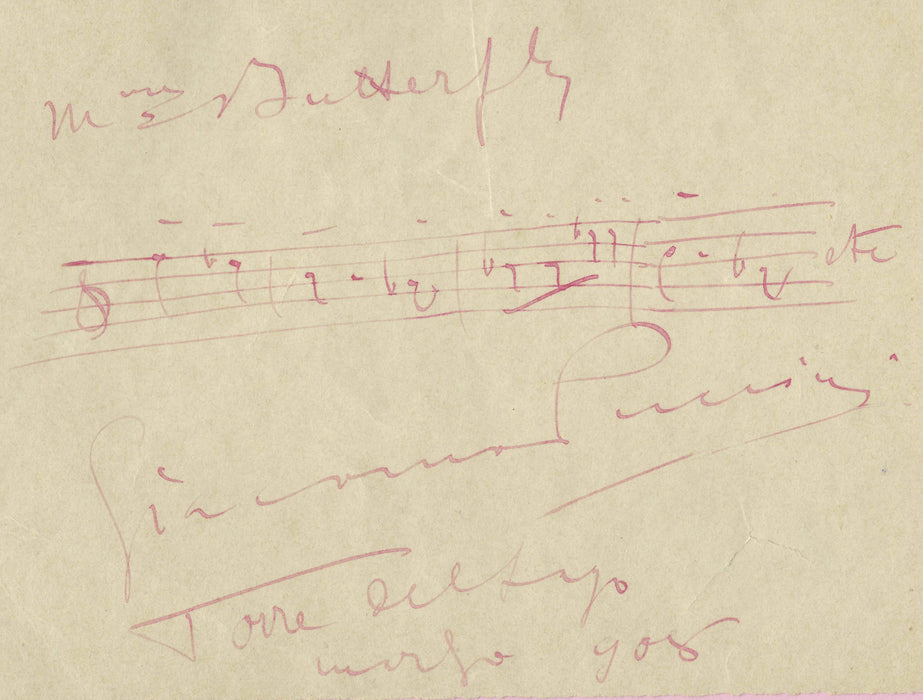 Mme Butterfly
etc
Giacomo Puccini
Torre del Lago
marzo 908